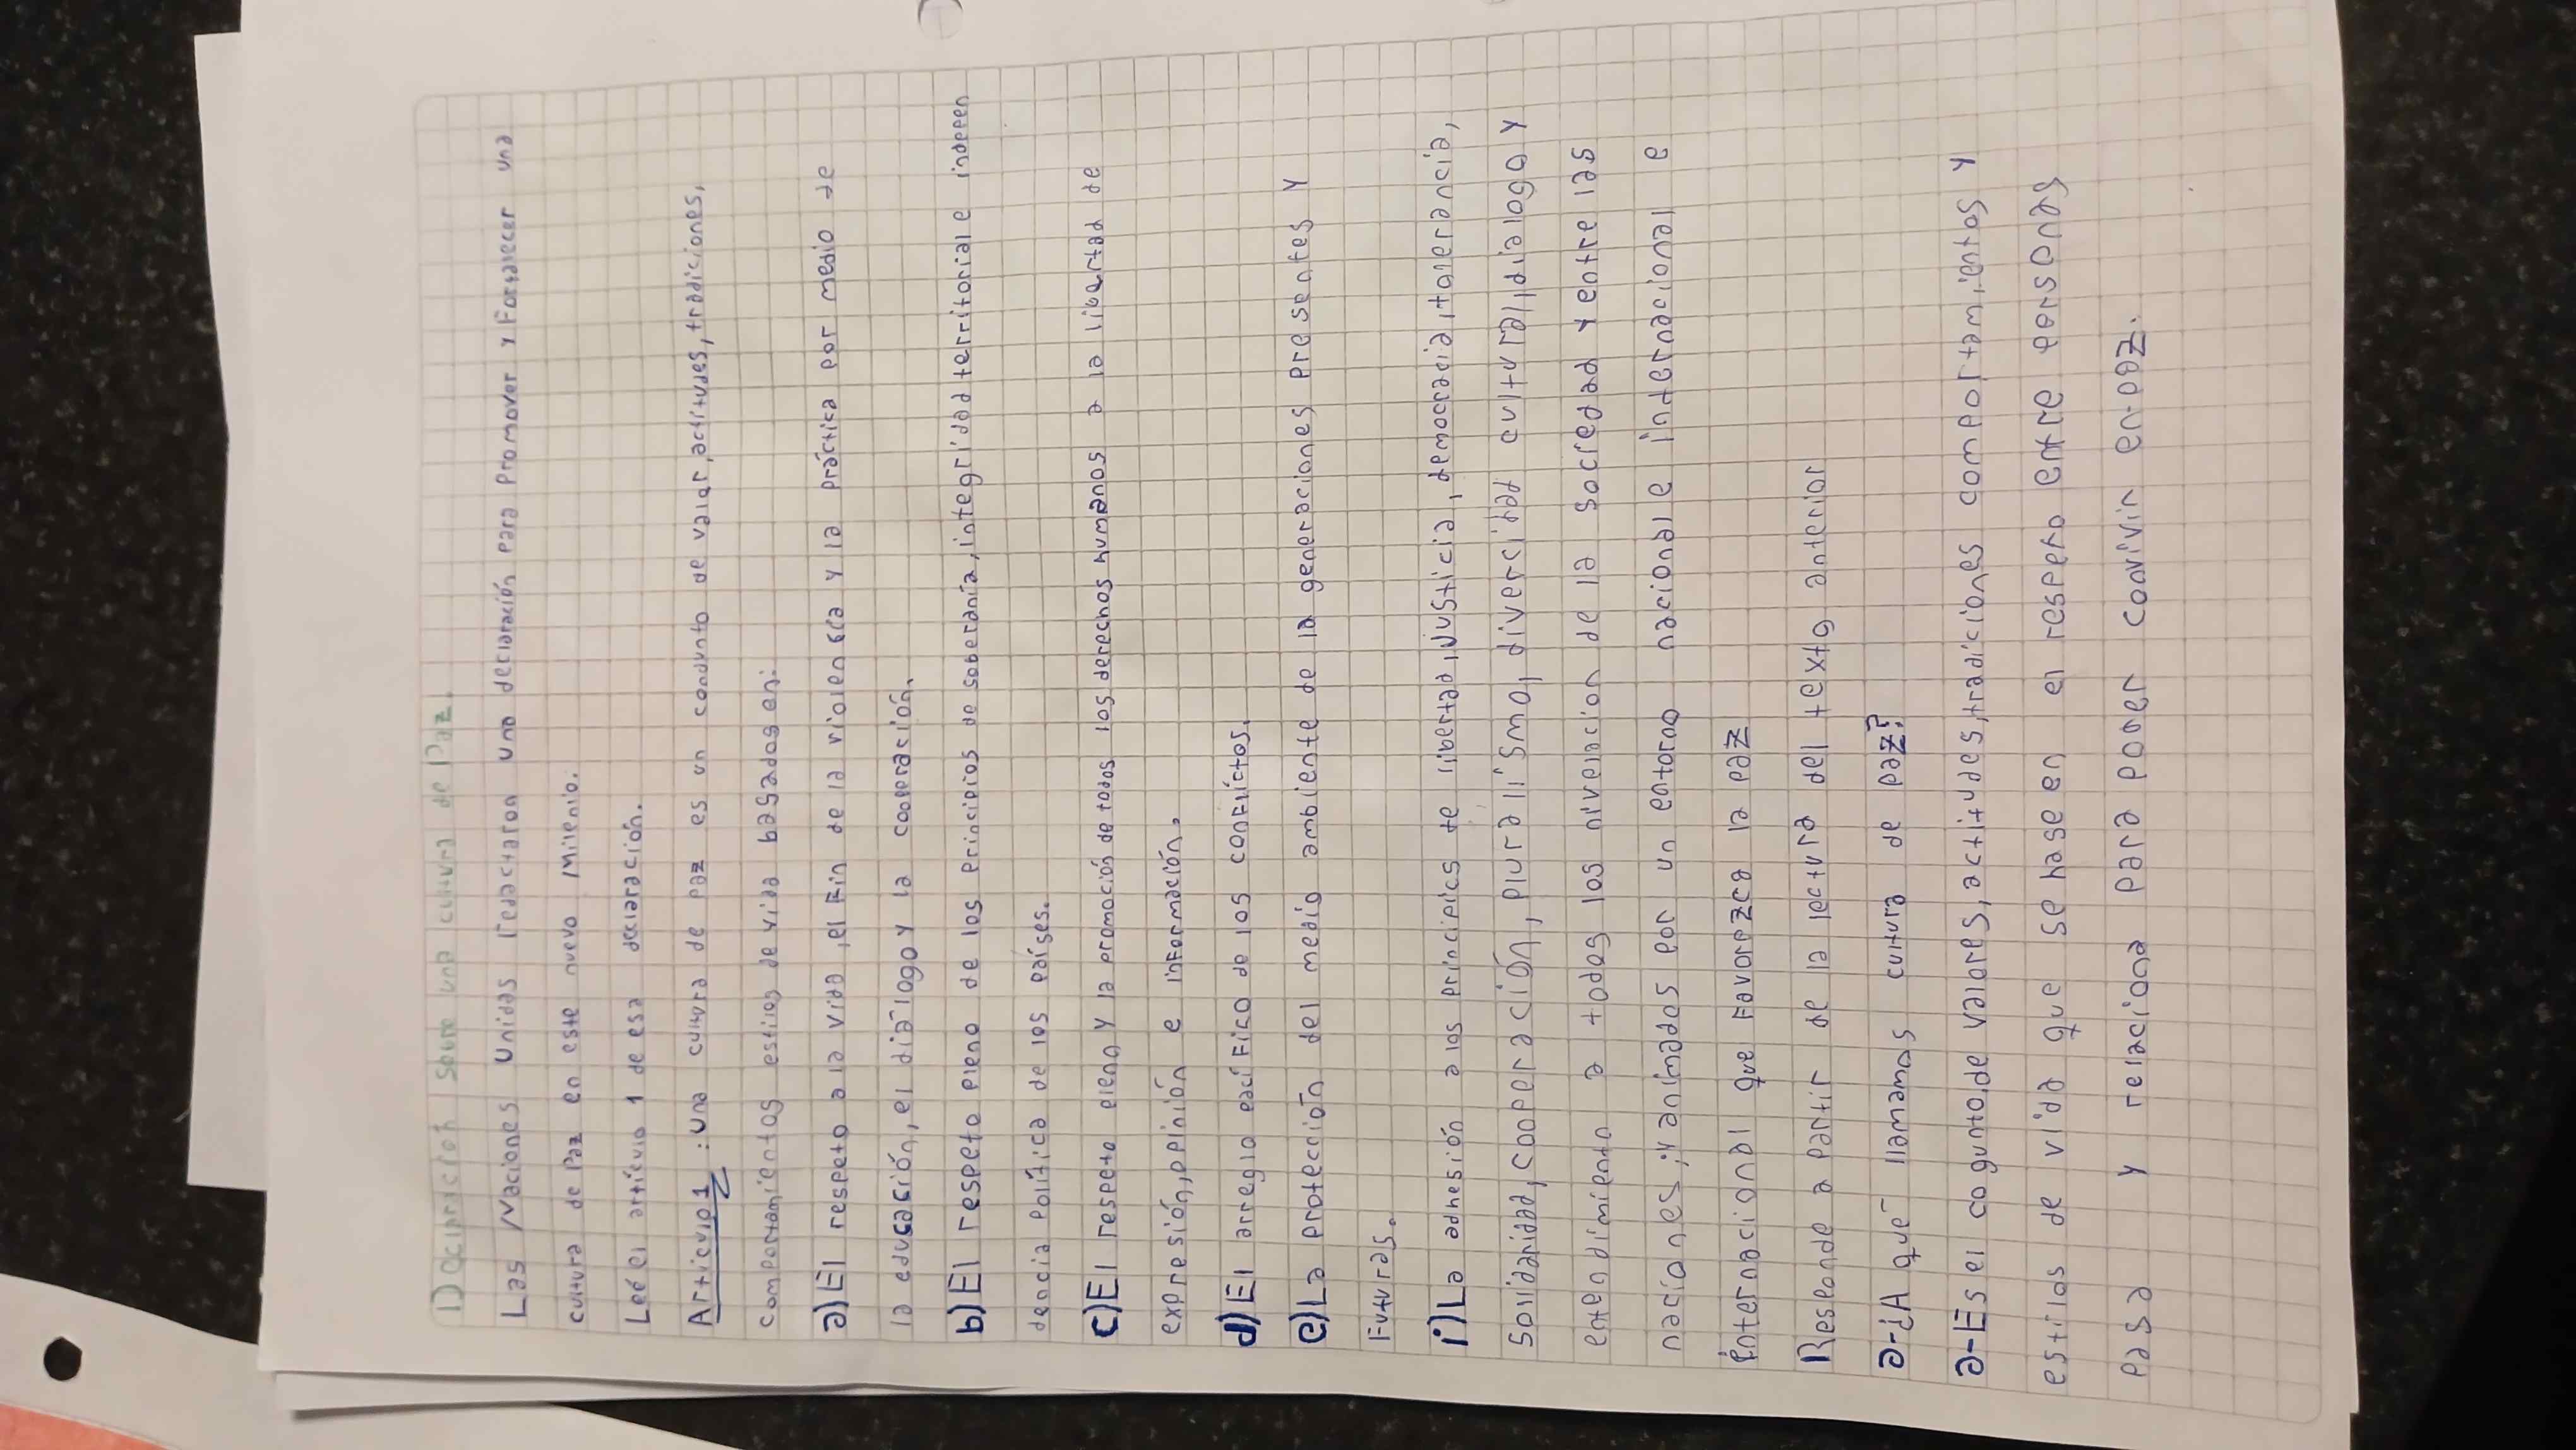 Declaración sobre una cultura de Paz.
Las Naciones Unidas redactaron una declaración para promover y Fortalecer una
cultura de Paz en este nuevo Milenio.
Leé el artículo 1 de esa declaración.
Artículo 1: una cultura de paz es un conjunto de valor, actitudes, tradiciones,
comportamientos estilos de vida basados en:
a) El respeto a la vida, el Fin de la violencia y la práctica por medio de
la educación, el diálogo y la cooperación.
b) El respeto pleno de los principios de soberanía, integridad territorial e indepen
dencia política de los países.
c) El respeto pleno y la promoción de todos los derechos humanos a la libertad de
expresión, opinión e información.
d) El arreglo pacífico de los conflictos.
e) La protección del medio ambiente de la generaciones presentes y
Futuras.
i) La adhesión a los principios de libertad, justicia, democracia, tolerancia,
solidaridad, cooperación, pluralismo, divercidad cultural, dialogo y
entendimiento a todos los nivelacion de la sociedad y entre las
naciones; y animados por un entorno nacional e internacional e
internacional que Favorezca la paz
Responde a partir de la lectura del texto anterior
a-¿A qué llamamos cultura de paz?
a-Es el cogunto de valores, actitudes, tradiciones comportamientos y
estilos de vida que se hase en el respeto entre personas
pasa y relaciona para poder convivir en paz.